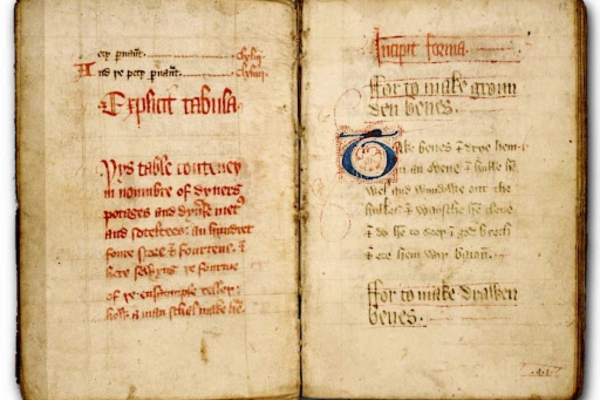 ery pnaūt.
And ye pety pnaūt.
Explicit tabula
Þys table conteney
in noumbre of dyuers
potages and dyuse metꝭ
and soteltees: an hundret
foure score & fourtene. &
here folwyng ye fourme
of ye ensample tellez:
how a man schal make hē.
Incipit forma.
ffor to make groun
den benes.
Take benes & drye hem
in an ovene & hulle hē
wel and wyndwe out the
hulkes & waysche hē clene
& do hē to seeþ ī god broth
& ete hem wyþ bacon.
ffor to make drawen
benes.